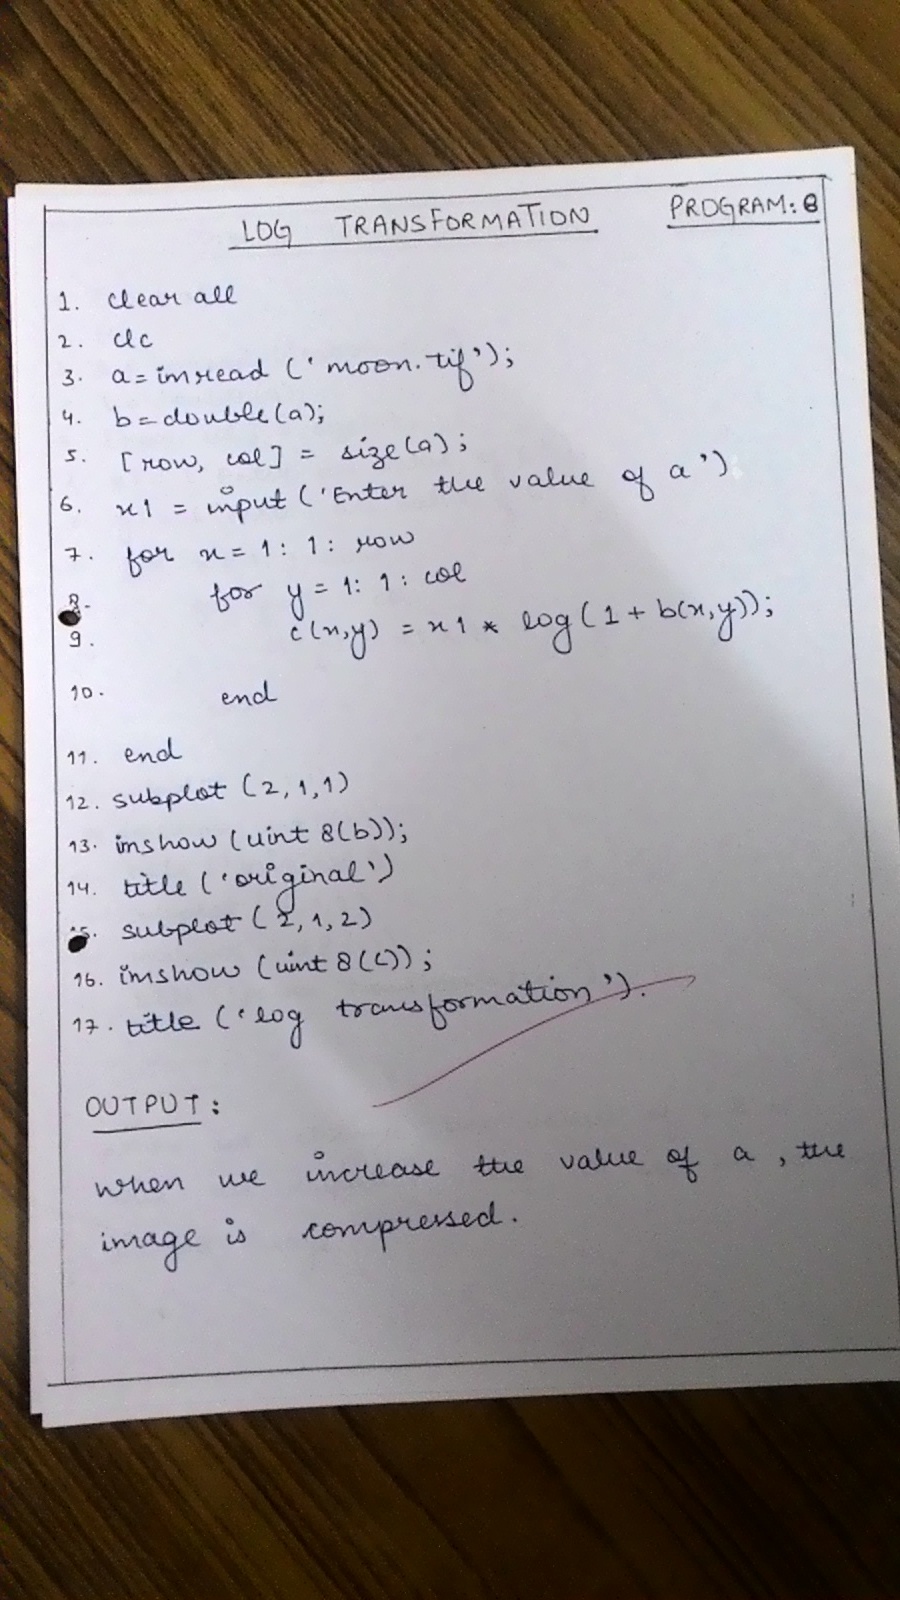 LOG TRANSFORMATION PROGRAM: 8
1. clear all
2. clc
3. a=imread ('moon.tif');
4. b=double(a);
5. [row, col] = size(a);
6. x1 = input ('Enter the value of a')
7. for x = 1: 1: row
8. for y = 1: 1: col
9. c(x,y) = x1 * log(1 + b(x,y));
10. end
11. end
12. subplot (2,1,1)
13. imshow (uint 8(b));
14. title ('original')
15. subplot (2,1,2)
16. imshow (uint 8(c));
17. title ('log transformation').
OUTPUT:
when we increase the value of a, the
image is compressed.